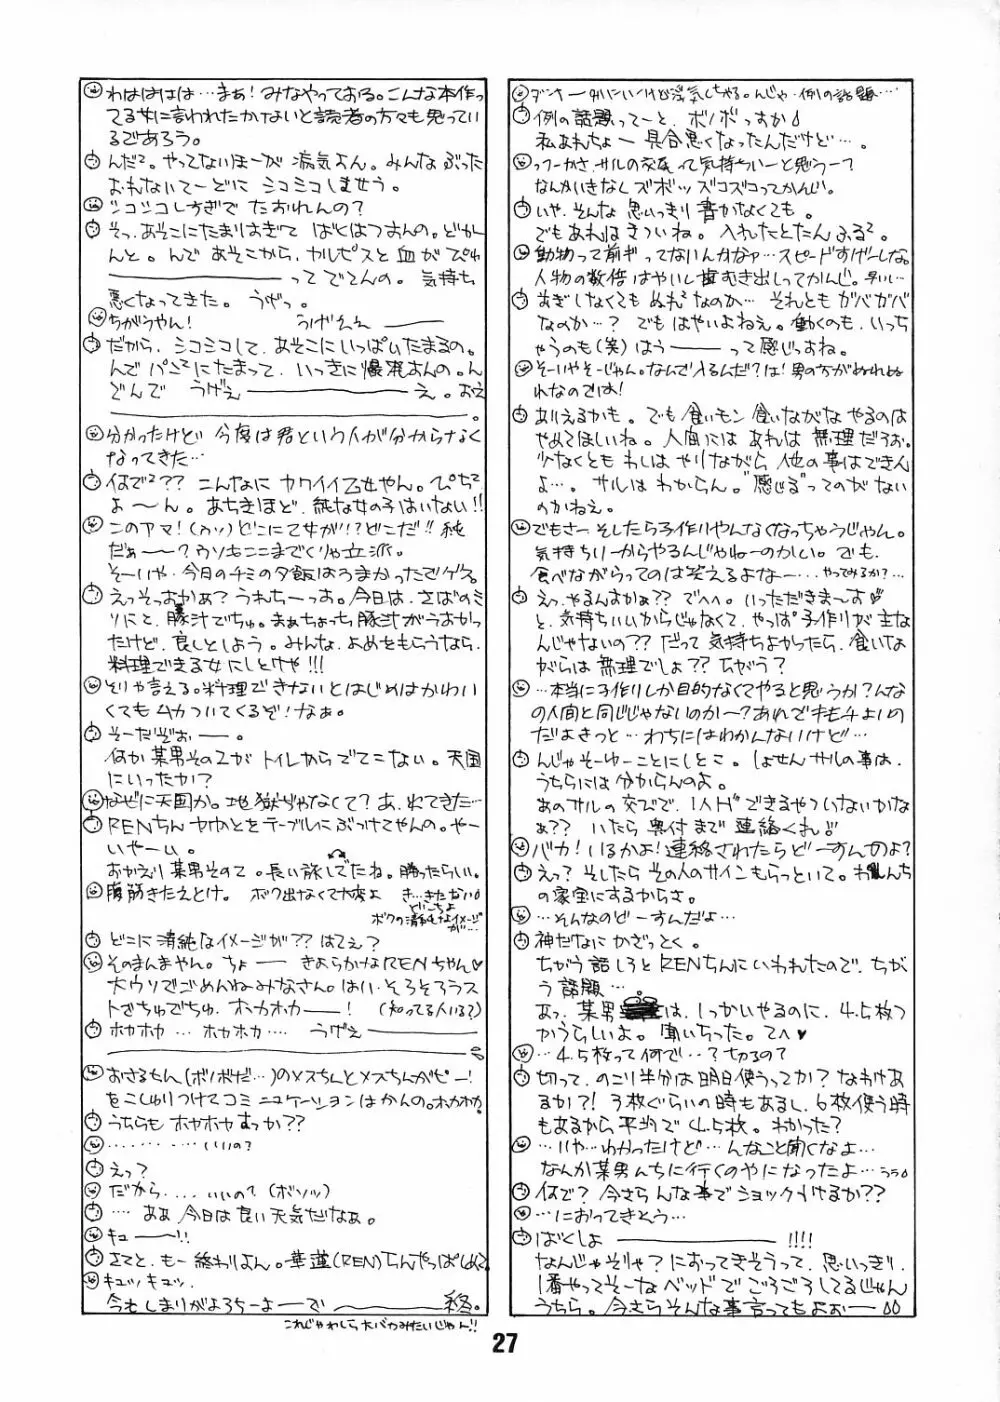 例の話題ってーと、ボノボっすか♪
私あれちょー具合悪くなったんだけど…。
っつーかさ、サルの交尾って気持ちいーと思うー?
なんかいきなしズボッズコズコってかんじ。
いや、そんな思いっきり書かなくても。
でもあれはきついね。入れたとたんふる²。
動物って前ギってないんかなァ…スピードすげーしな。
人物の数倍はやいし歯むき出しってかんじ。早い…
まぎしなくてもぬれ²なのか…それともガバガバ
なのか…?でもはやいよねぇ。働くのも、いっち
ゃうのも(笑)はうーーーって感じっすね。
そーいやそーじゃん。なんで入るんだ?は!男の方がぬれぬ
れなのでは!
ありえるかも。でも食いモン食いながなやるのは
やめてほしいね。人間にはあれは無理だろぉ。
少なくともわしはやりながら他の事はできん
よ…。サルはわからん。"感じる"ってのがない
のかねぇ。
でもさーそしたら子作りやんなくなっちゃうじゃん。
気持ちいーからやるんじゃねーのかい。でも、
食べながらってのは笑えるよなー…やってみるか?…
えっ、やるんすかぁ??でへへ。いっただきまーす♥
と、気持ちいいからじゃなくて、やっぱ子作りが主な
んじゃないの??だって気持ちよかったら、食いな
がらは無理でしょ??ちがう?
…本当に子作りしか目的なくてやると思うか?んな
の人間と同じじゃないのか〜?あれでキモチよいの
だよきっと…わちにはわかんないけど…
んじゃそーゆーことにしとこ。しょせんサルの事は、
うちらには分からんのよ。
あのサルの交びで、1人Hできるやついないかな
ぁ??いたら奥付まで連絡くれ!!
バカ!いるかよ!連絡されたらどーすんのよ?
えっ?そしたらその人のサインもらっといて。わしんち
の家宝にするからさ。
…そんなのどーすんだよ…
神だなにかざっとく。
ちがう話しろとRENちんにいわれたので、ちが
う話題…
あっ、某男は、1っかいやるのに、4.5枚つ
かうらしいよ。聞いちった。てへ♥
…4.5枚って何で…?切るの?
切って、のこり半分は明日使うってか?なわけあ
るか?!3枚ぐらいの時もあるし、6枚使う時
もあるから平均で4.5枚。わかった?
…いや…わかったけど…んなこと聞くなよ…
なんか某男んちに行くのやになったよ…うぅ。
何で?今さらんな事でショックうけるか??
…におってきそう…
ばくしょーーー!!!!
なんじゃそりゃ?におってきそうって、思いっきり、
1番やってそーなベッドでごろごろしてるじゃん
うちら。今さらそんな事言ってもよぉーー
わはははは…まぁ!みなやっておる。こんな本作っ
てる女に言われたかないと読者の方々も思ってい
るであろう。
んだ²。やってないほーが病気よん。みんなぶった
おれないてーどにシコシコしませう。
シコシコしすぎでたおれんの?
そっ、あそこにたまりすぎてばくはつすんの。どか
んと。んであそこから、カルピスと血がぴゅ
ーーーーーーーってでてんの。気持ち
悪くなってきた。うげっ。
ちがうやん! うげぇぇーーー
だから、シコシコして、あそこにいっぱいたまるの。
んでパン²にたまって、いっきに爆発すんの。ん
どんでうげぇーーーーーーーえ。おえ
ーーーーーーーーーーーーーーー。
分かったけど今度は君という人が分からなく
なってきた…
何で²??こんなにカワイイ乙女やん。ぴち²
よ〜ん。あちきほど、純な女の子はいない!!
このアマ!(ウソ)どこに乙女が!!?どこだ!!純
だぁ〜〜?ウソもここまでくりゃ立派。
そーいや、今日のチミの夕飯はうまかったでゲス。
えっそっすかぁ?うれちーっす。今日は、さばのミ
ソにと、豚汁でちゅ。まぁちょっち、豚汁がうすかっ
たけど、良しとしよう。みんな、よめをもらうなら、
料理できる女にしとけや!!!
そりゃ言える。料理できないとはじめはかわい
くてもムカついてくるぞ!なぁ。
そーだぞぉーー。
何か某男その2がトイレからでてこない。天国
にいったか?
なぜに天国か。地獄ぢゃなくて?あ、出てきた…
RENちんをテーブルにぶつけてやんの。やー
いやーい。
おかえり某男その2。長い旅してたね。勝ったらしい。
腹筋きたえとけ。ボク出なくて大変よ き…きたない。
どこちよ
ボクの清純なイメージ
が…
どこに清純なイメージが??はてぇ?
そのまんまやん。ちょーーきよらかなRENちゃん♥
大ウソでごめんねみなさん。はい、そろそろラス
トでちゅでちゅ。ホカホカーー!(知ってる人いる?)
ホカホカ…ホカホカ…うげぇーーー
ーーーーーーーーーーーーーーー
おさるちん(ボノボだ…)のメスちんとメスちんがピー!
をこしゅりつけてコミュニケーションはかんの。ホカホカ
うちらもホカホカすっか??
…………いいの?
えっ?
だから.....いいの?(ボソッ)
…ああ今日は良い天気だなぁ。
キュー〜!!
さてと、もー終わりよん。華蓮(REN)ちん
キュッキュッ、
今もしまりがよろちーよーーでーーーー終。
これじゃわしら大バカみたいじゃん!!
27